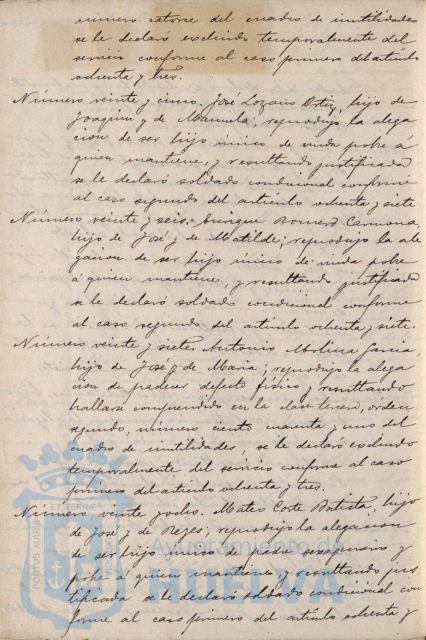 número catorce del cuadro de inutilidades
se le declaró excluido temporalmente del
servicio conforme al caso primero del artículo
ochenta y tres.
Número veinte y cinco. José Lozano Ortiz, hijo de
Joaquin y de Manuela; reprodujo la alega
cion de ser hijo único de viuda pobre á
quien mantiene, y resultando justificada
se le declaró soldado condicional conforme
al caso segundo del artículo ochenta y siete
Número veinte y seis. Enrique Romero Carmona,
hijo de José y de Matilde; reprodujo la ale
gacion de ser hijo único de viuda pobre
á quien mantiene, y resultando justificada
se le declaró soldado condicional conforme
al caso segundo del artículo ochenta y siete.
Número veinte y siete. Antonio Molina Garcia,
hijo de José y de Maria; reprodujo la alega
cion de padecer defecto físico y resultando
hallarse comprendido en la clase tercera, órden
segundo, número ciento cuarenta y uno del
cuadro de inutilidades, se le declaró excluido
temporalmente del servicio conforme al caso
primero del artículo ochenta y tres.
Número veinte y ocho. Mateo Corte Batista, hijo
de José y de Reyes; reprodujo la alegacion
de ser hijo único de padre sexagenario y
pobre á quien mantiene y resultando jus
tificada se le declaró soldado condicional con
forme al caso primero del artículo ochenta y
Ayuntamiento de
HUELVA
PORTUS MARIS ET TERRAE